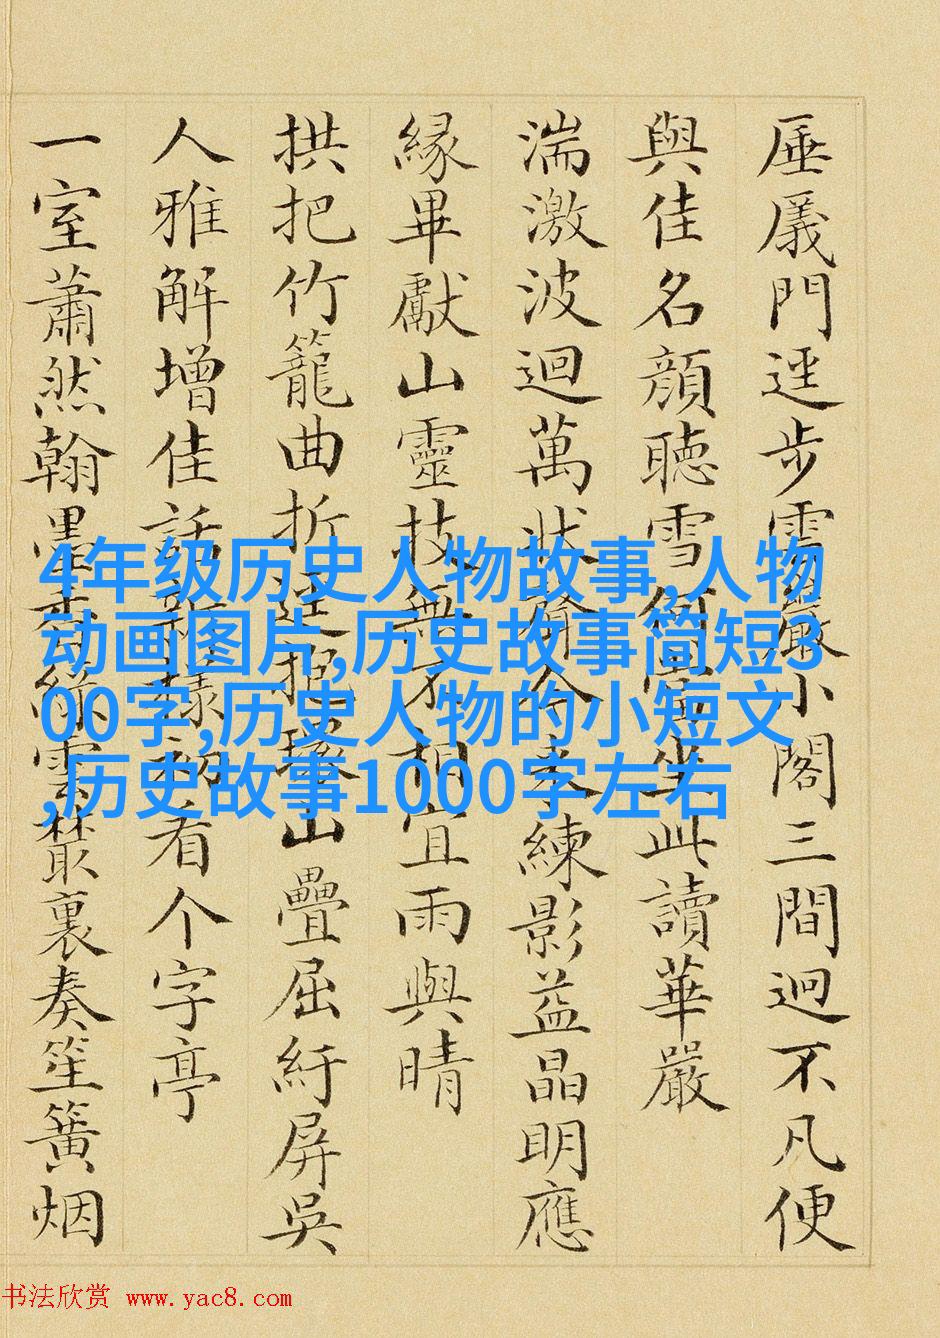 厜㕒門逕步巖小閣三間迥不凡便
與佳名顏聽雪倘當坐此讀華嚴
湍激波迴萬狀喻今來練影益晶明應
緣畢獻山靈技無不相宜雨與晴
拱把竹籠曲折逕山疊屈紆屏吳
人雅解增佳話新樣初看个字亭
一室蕭然翰墨香綠雲叢裏奏笙簧烟
4年级历史人物故事,人物
动画图片,历史故事简短3
00字,历史人物的小短文
,历史故事1000字左右
书法欣赏 www.yac8.com